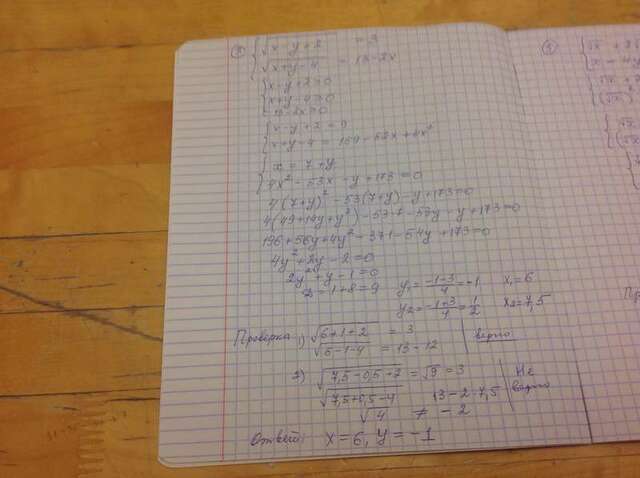 √(x-y+2) = 3
√(x+y-4) = 13-2x
x-y+2≥0
x+y-4≥0
13-2x≥0
x-y+2=9
x+y-4 = 169-52x+4x²
x = 7+y
4x²-53x-y+173=0
4(7+y)²-53(7+y)-y+173=0
4(49+14y+y²)-53·7-53y-y+173=0
196+56y+4y²-371-54y+173=0
4y²+2y-2=0
2y²+y-1=0
D=1+8=9 y₁=(-1-3)/4=-1 x₁=6
y₂=(-1+3)/4=1/2 x₂=7,5
Проверка 1) √(6+1+2) = 3
√(6-1-4) = 13-12 верно
2) √(7,5-0,5+2) = √9 = 3 Не
√(7,5+0,5-4) 13-2·7,5 верно
√4 ≠ -2
Ответ: x=6, y=-1